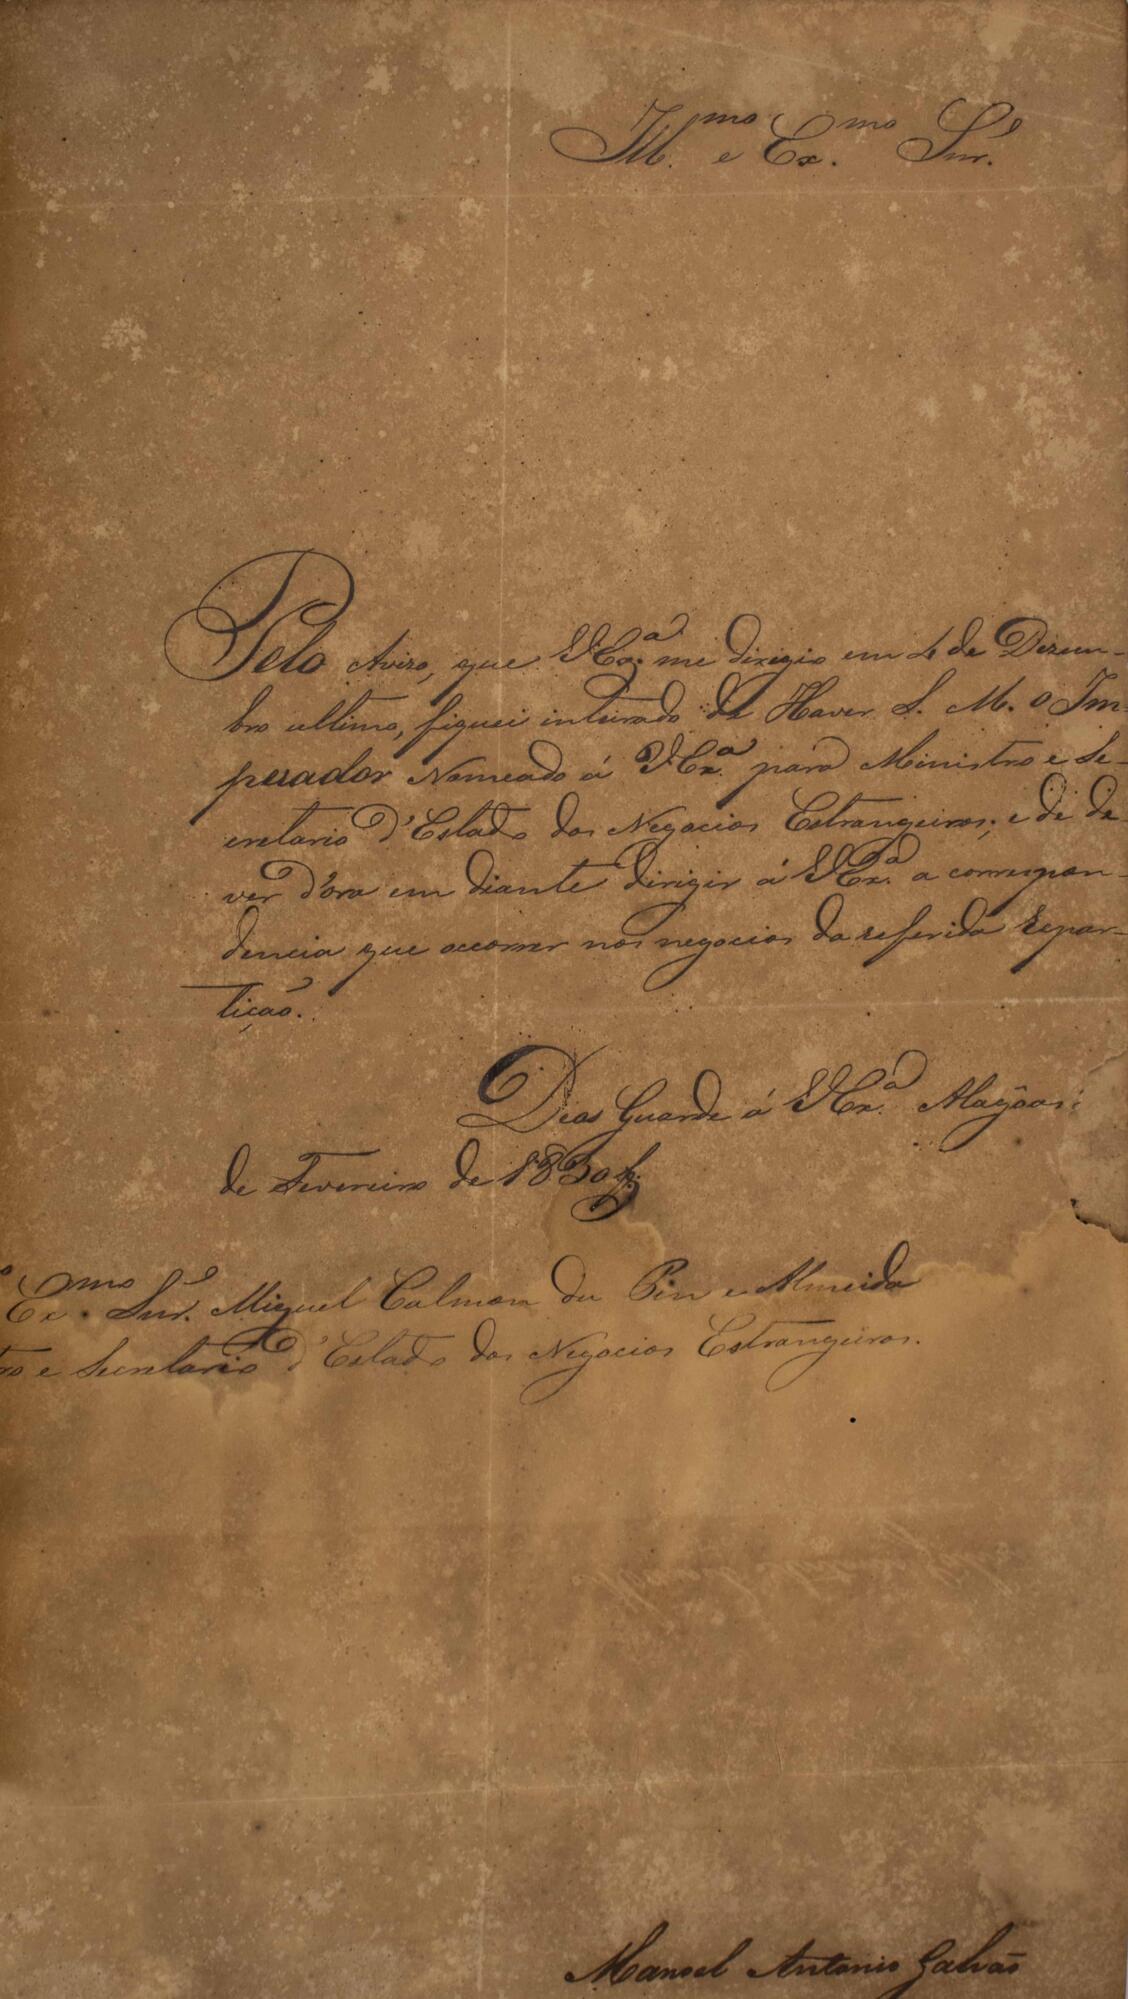 Ill.mo e Ex.mo Snr.
Pelo Aviso, que VEx.a me dirigio em 4 de Dezem-
bro ultimo, fiquei inteirado de Haver S. M. o Im-
perador Nomeado á VEx.a para Ministro e Se-
cretario d'Estado dos Negocios Estrangeiros; e de de-
ver d'ora em diante dirigir á VEx.a a correspon-
dencia que occorrer nos negocios da referida repar-
tição.
Deos Guarde á VEx.a Alagôas
de Fevereiro de 1830
Ex.mo Snr. Miguel Calmon du Pin e Almeida
ro e Secretario d'Estado dos Negocios Estrangeiros.
Manoel Antonio Galvão